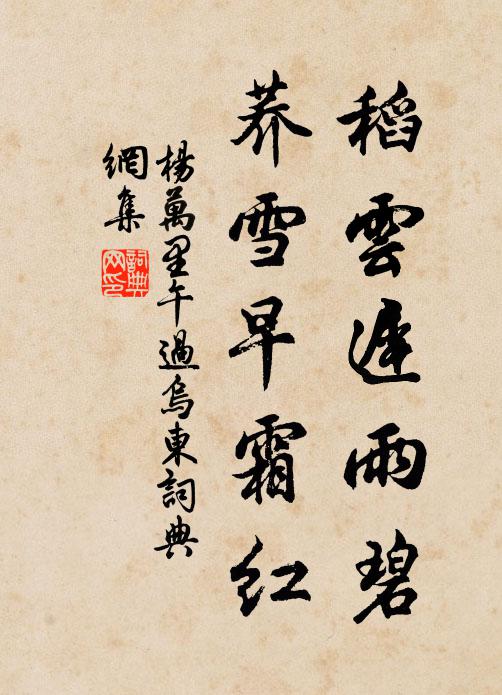 稻雲遲雨碧
荞雪早霜红
楊萬里午過烏東詞典
網集
詞典
网印